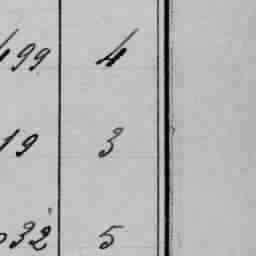 499 4
19 3
032 5